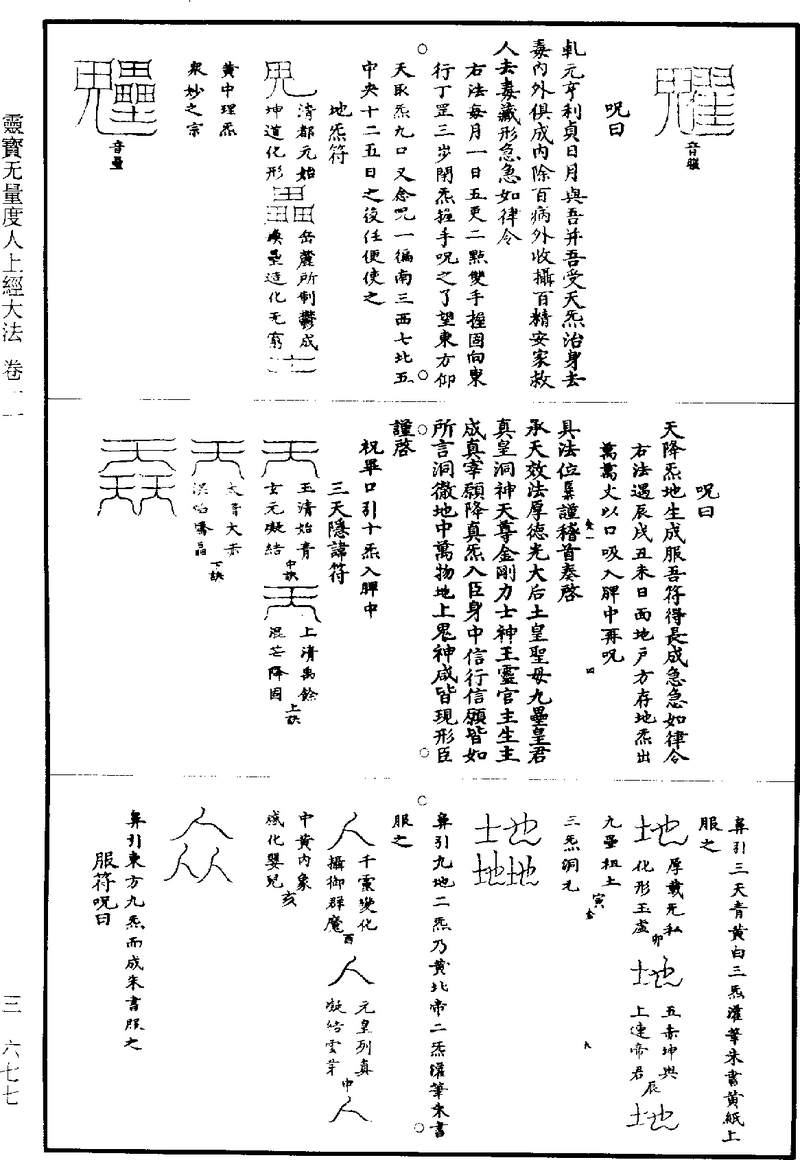 音䰢
呪曰
乹元亨利貞日月與吾并吾受天炁治身去
毒內外俱成內除百病外收攝百精安家救
人去毒藏形急急如律令
右法每月一日五更二點雙手握固向東
行丁罡三步閉炁握手呪之了望東方仰
天取炁九口又念呪一徧南三西七北五
中央十二五日之後任便使之
地炁符
清都元始
坤道化形
岳麓所制鬱成
造化无窮
黃中理炁
衆妙之宗
音壘
呪曰
天降炁地生成服吾符得長成急急如律令
右法遇辰戌丑未日面地戶方存地炁出
萬萬丈以口吸入脾中再呪
具法位臣謹稽首奏啓
承天效法厚德光大后土皇聖母九壘皇君
真皇洞神天尊金剛力士神王靈官主生主
成真宰願降真炁入臣身中信行信願皆如
所言洞徹地中萬物地上鬼神咸皆現形臣
謹啓
祝畢口引十炁入脾中
三天隱諱符
玉清始青
玄元凝結
中訣
上清禹餘
混芒降因
上訣
太青大赤
下訣
鼻引三天青黃白三炁灌筆朱書黃紙上
服之
地
厚載无私
化形玉虛
卯
地
五赤坤與
上連帝君
辰
地
九壘祖土
寅
三炁洞元
地地地
鼻引九地二炁乃黃北帝二炁灌筆朱書
服之
人
千靈變化
攝御群魔
酉
人
元皇列真
凝結雲芽
申
人
中黃內象
咸化嬰兒
亥
人人人
鼻引東方九炁而成朱書服之
服符呪曰
靈寶无量度人上經大法 卷一一
三 六七七